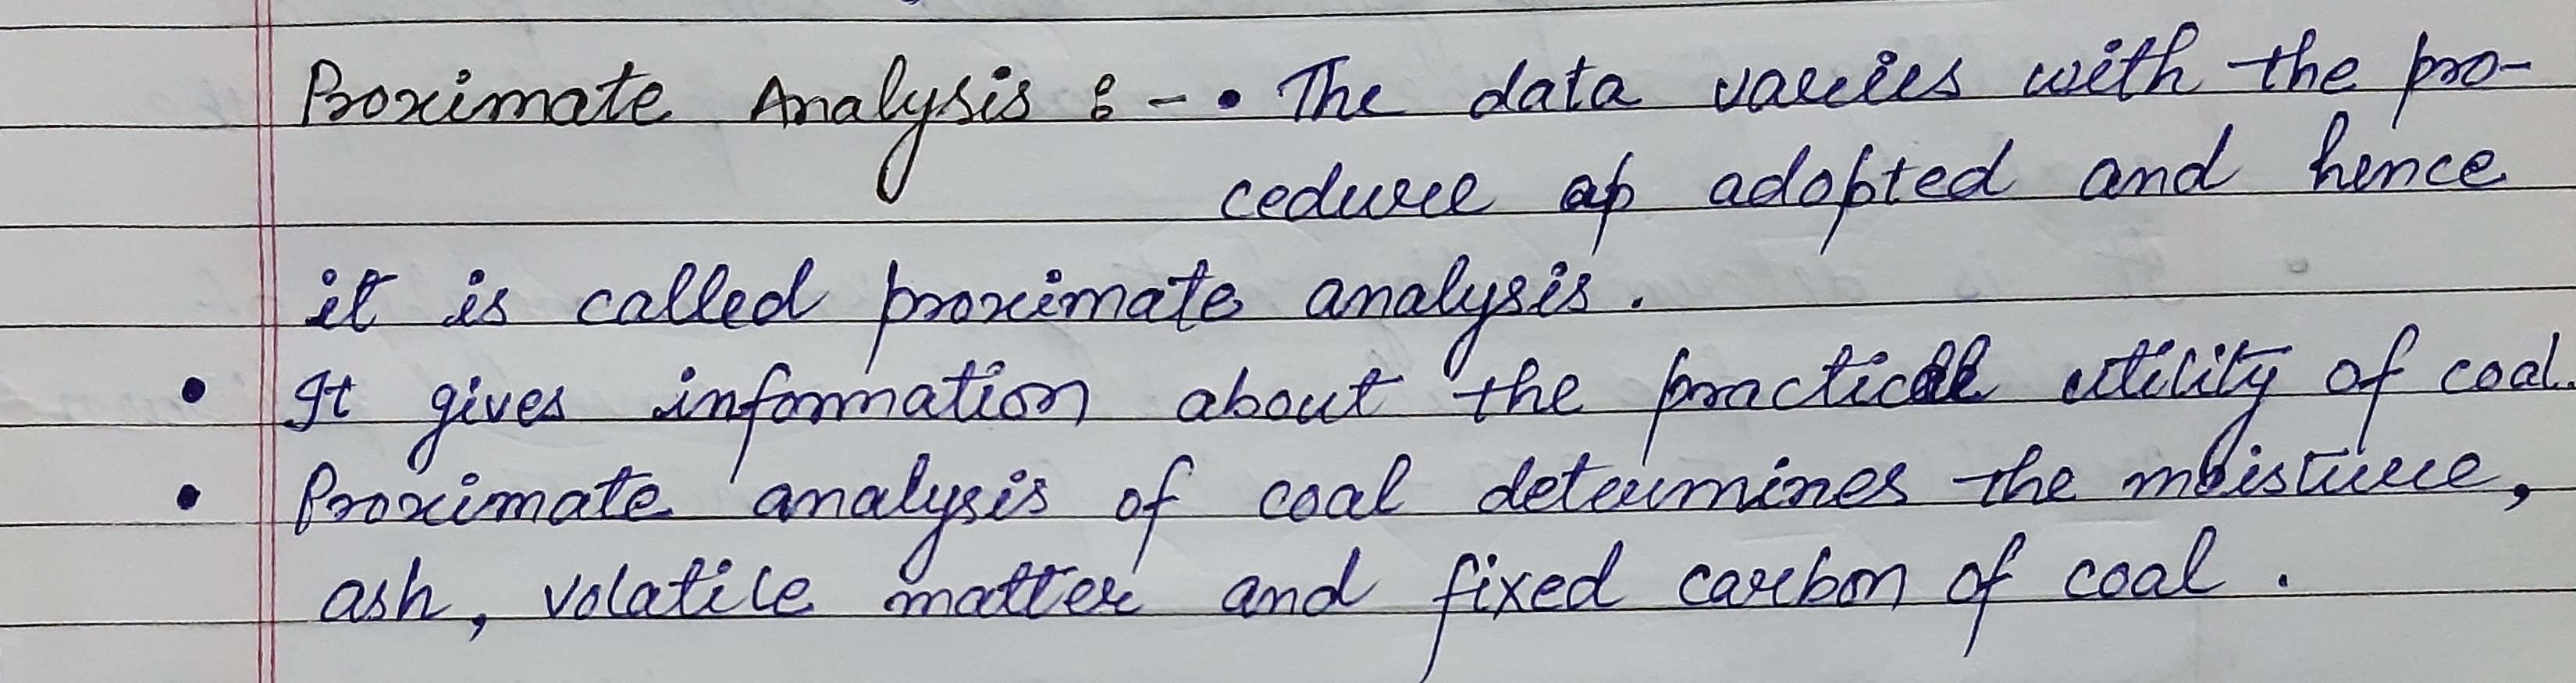 Proximate Analysis :- • The data varies with the pro-
cedure ap adopted and hence
it is called proximate analysis.
• It gives information about the practical utility of coal.
• Proximate analysis of coal determines the moisture,
ash, volatile matter and fixed carbon of coal.